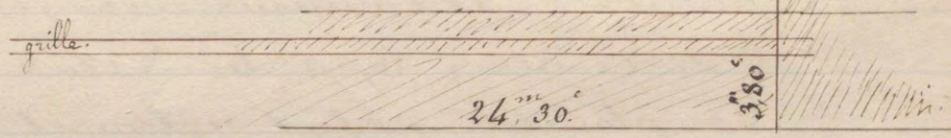 grille.
24.ᵐ 30.ᶜ
3ᵐ,80ᶜ